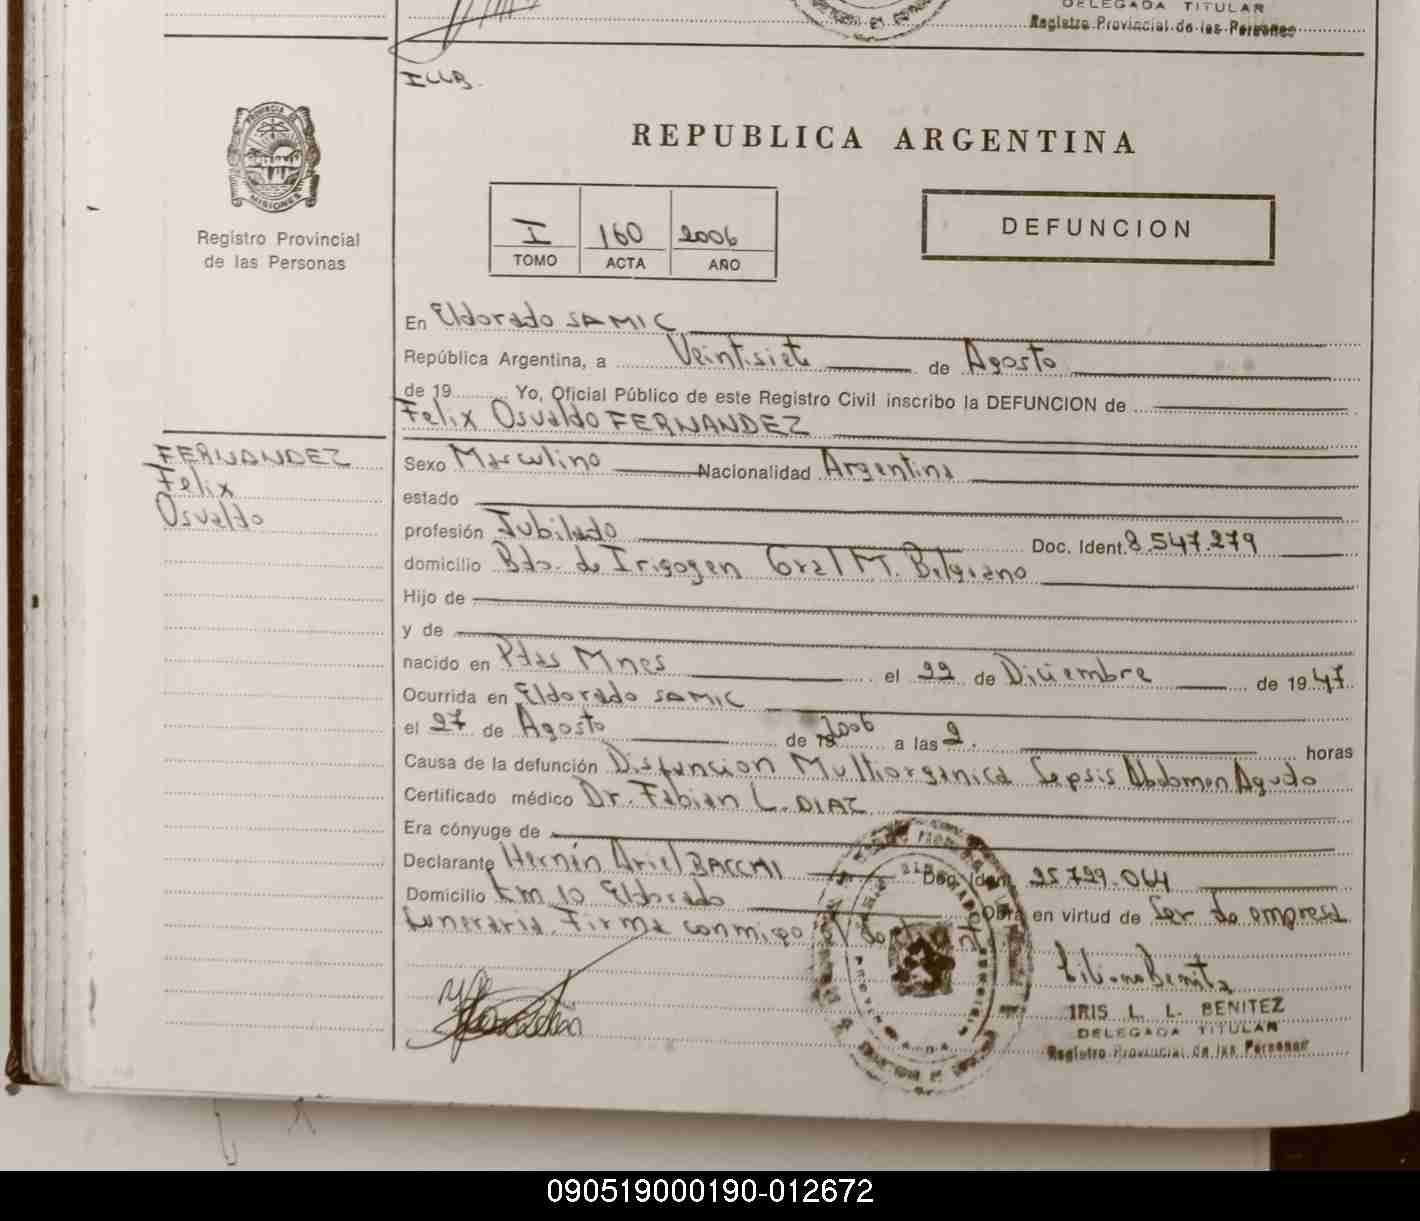 DELEGADA TITULAR
Registro Provincial de las Personas
ILLB.
PROVINCIA DE
MISIONES
Registro Provincial
de las Personas
REPUBLICA ARGENTINA
I 160 2006
TOMO ACTA AÑO
DEFUNCION
En Eldorado SAMIC
República Argentina, a Veintisiete de Agosto
de 19 Yo, Oficial Público de este Registro Civil inscribo la DEFUNCION de
Felix Osvaldo FERNANDEZ
FERNANDEZ
Felix
Osvaldo
Sexo Masculino Nacionalidad Argentina
estado
profesión Jubilado Doc. Ident. 8.547.279
domicilio Bdo. de Irigogen Gral M. Belgrano
Hijo de
y de
nacido en Pdas Mnes el 22 de Diciembre de 1947
Ocurrida en Eldorado SAMIC
el 27 de Agosto de 19 2006 a las 2. horas
Causa de la defunción Disfuncion Multiorganica Sepsis Abdomen Agudo
Certificado médico Dr. Fabian L. DIAZ
Era cónyuge de
Declarante Hernán Ariel BACCHI Doc. Iden. 25.729.064
Domicilio Km 10 Eldorado Obra en virtud de Ser de empresa
Funeraria. Firma conmigo el
Liliana Benitz
IRIS L. L. BENITEZ
DELEGADA TITULAR
Registro Provincial de las Personas
090519000190-012672